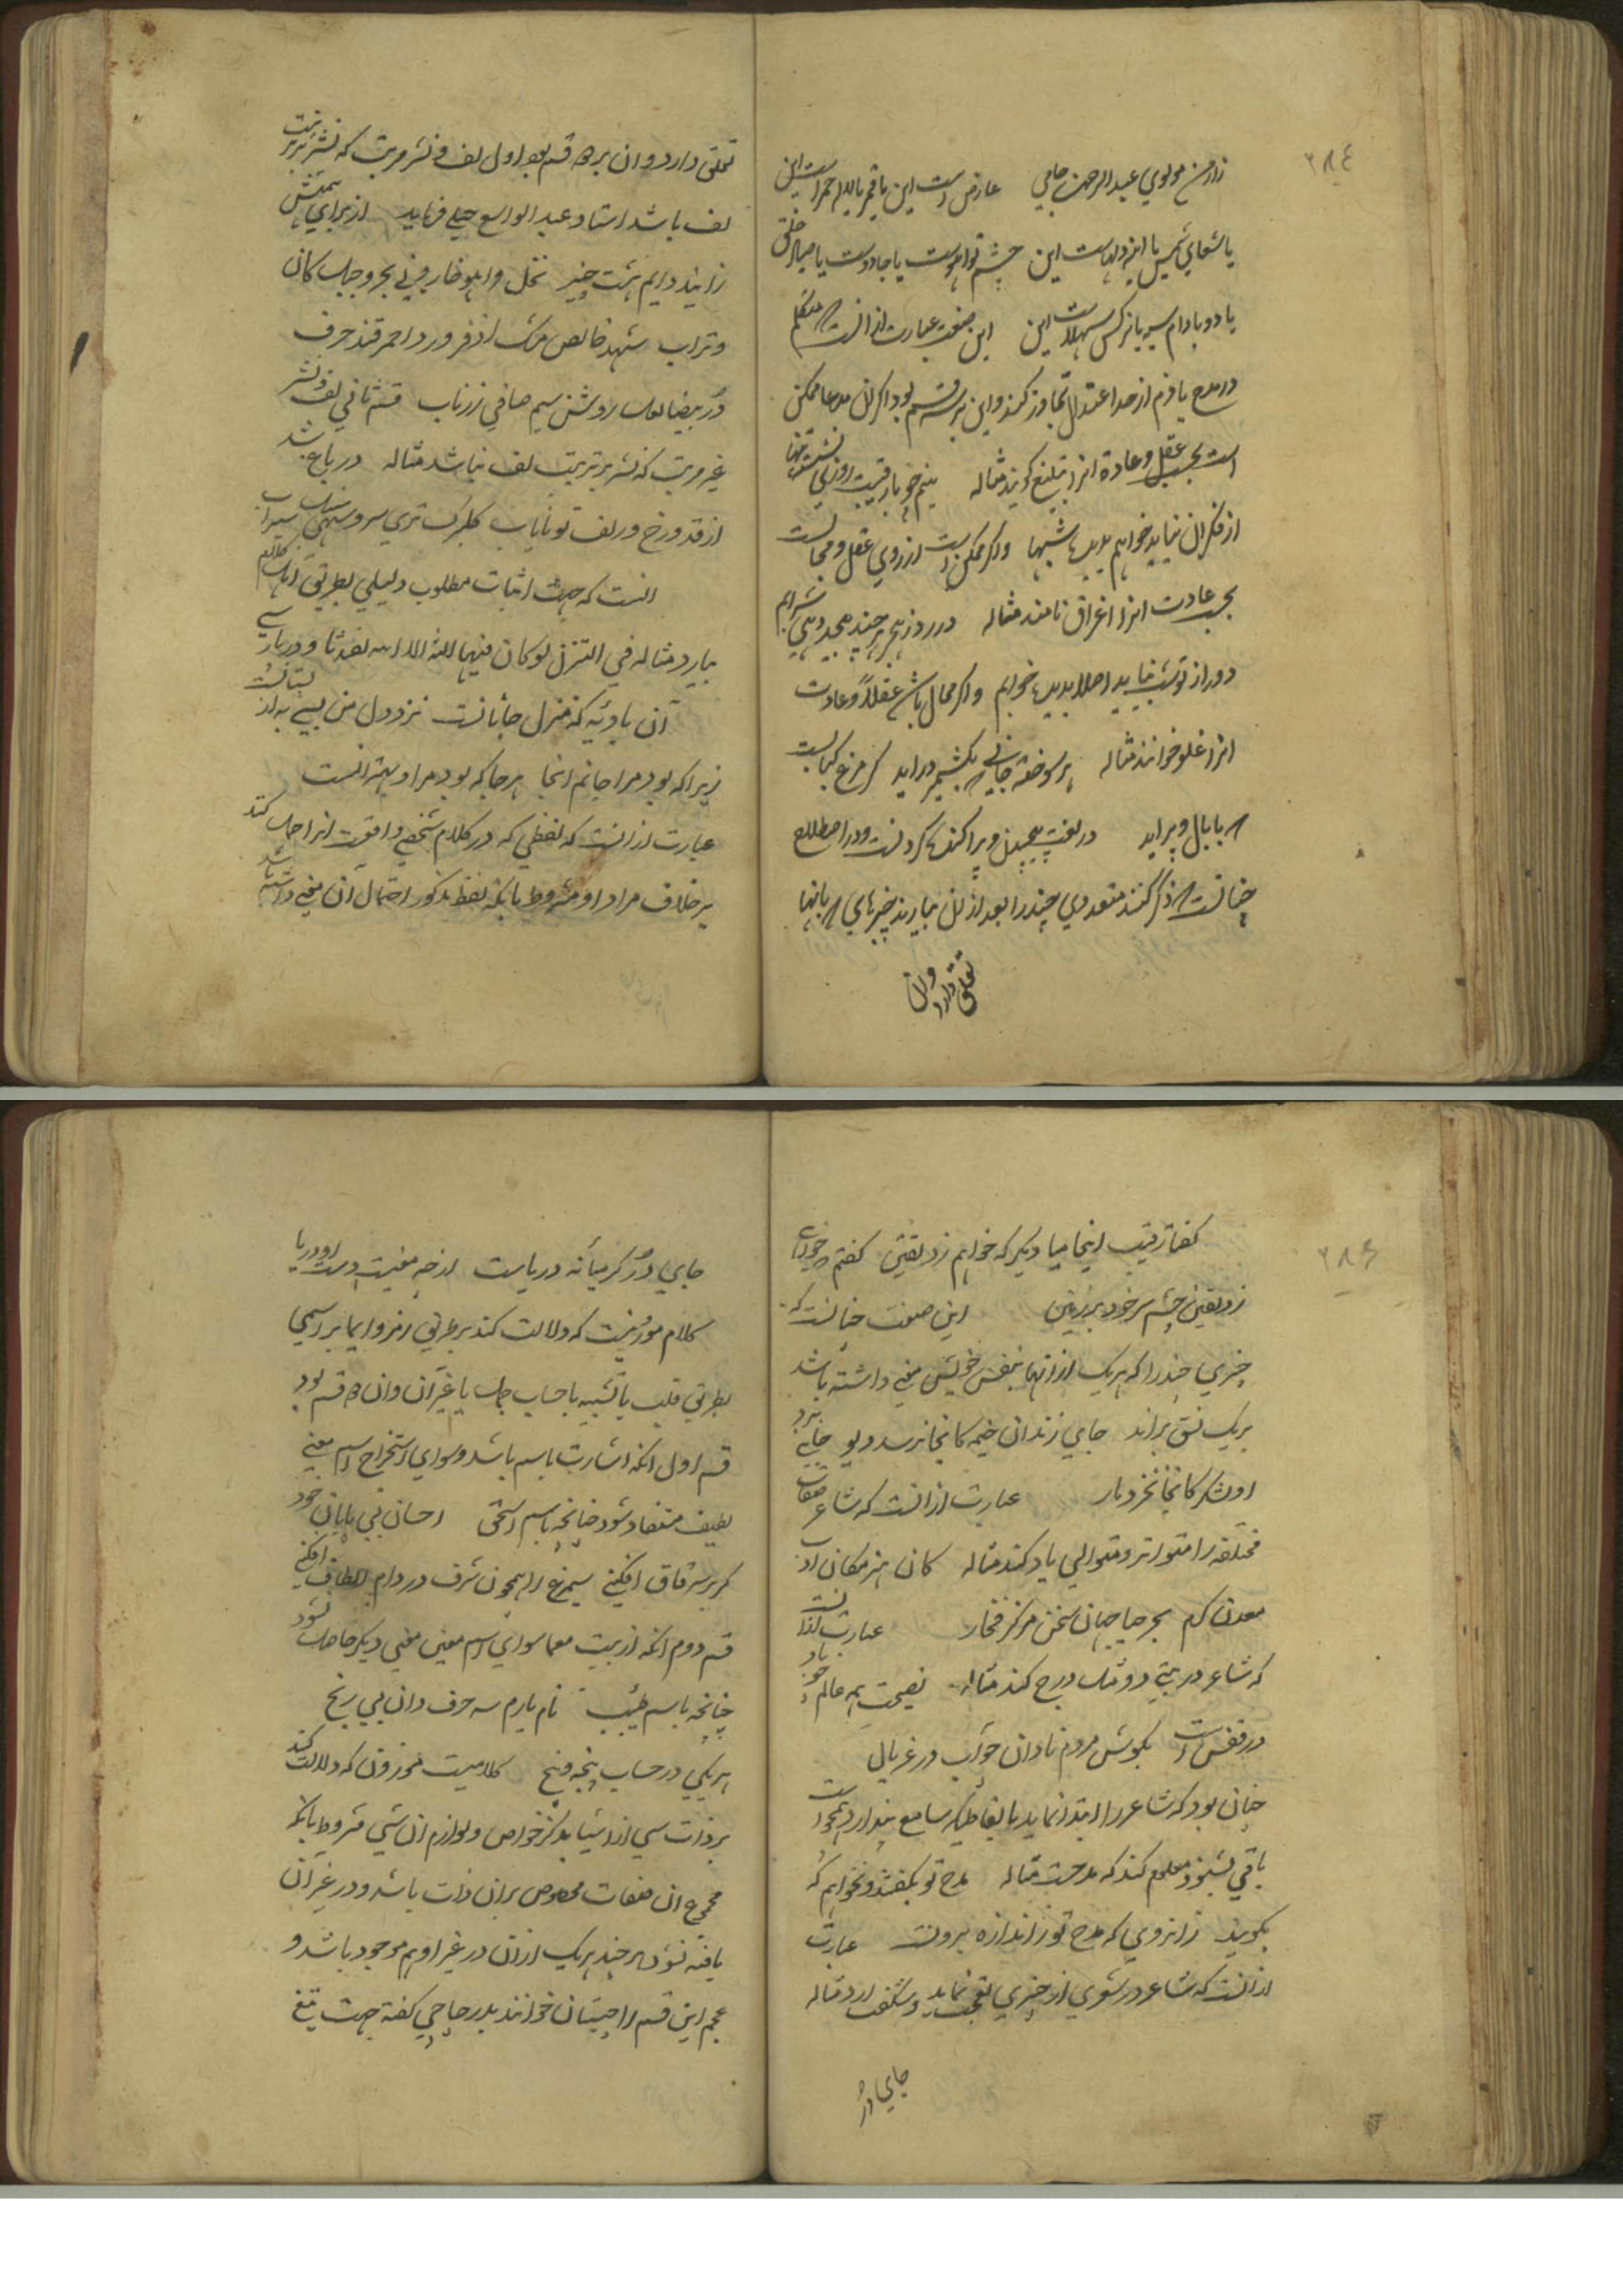 ٢٨٤
زادمن مولوي عبد الرحمن جامي عارض است این یا قمر یا لاله احمر است این
یا شعاع شمس یا اینه دلهاست این چشم تو آهوست یا جادوست یا صیاد خلق
یا دو بادام سیه یا نرکس شهلاست این این صنعت عبارت از انست که متکلم
در مدح یا ذم از حد اعتدال تجاوز کند و این بر سه قسم بود اکر ان مدعا ممکن
است بحسب عقل و عادة انرا تبلیغ کویند مثاله بینم چو با رقیب روزی نشسته تنها
از فکر ان نیاید خوابم بدیده شبها واکر ممکن است از روی عقل و محالست
بحسب عادت انرا اغراق نامند مثاله در روز هجر هر چند می دهی شرابم
دور از تو شب نیاید اصلا بدیده خوابم واکر محال باشد عقلاً و عادت
انرا غلو خوانند مثاله هر سوخته جانی که بکشمیر در اید کر مرغ کبابست
که با بال و پر اید در لغت پیچیدن و پراکنده کردنست و در اصطلاح
چنانست که ذکر کنند متعددی چند را بعد از ان بیارند چیزهای که بانها
تعلق دارد وان
تعلق دارد وان بر دو قسم بود اول لف و نشر مرتب که نشر بر ترتیب
لف باشد استاد عبد الواسع جبلی فرماید از برای
زایند دایم هشت چیز نخل و اهو خار و نی بحر و جبل کان
وتراب شهد خالص مشک اذفر ورد احمر قند حرف
در بیضا لعل روشن سیم صافی زر ناب قسم ثانی لف و نشر
غیر مرتب که نشر بر ترتیب لف نباشد مثاله در باغ شد
از قد و رخ و زلف تو نایاب کلبرک تری سرو سهی سنبل سیراب
انست که جهت اثبات مطلوب دلیلی بطریق اهل کلام
بیارد مثاله فی التنزل لوکان فیهما الهة الا الله لفسدتا و در پارسی
آن بادیه که منزل جانانست نزد دل من بسی به از بستانست
زیرا که بود مرا جانم انجا هر جا که بود مرا و بهتر انست
عبارت از انست که لفظی که در کلام شخصی واقعست انرا حمل کند
بر خلاف مراد او مشروط بانکه لفظ مذکور احتمال آن معنی داشته باشد
٢٨٥
کفتا رقیب اینجا میا دیگر که خواهم زد یقین کفتم چه خواهی
زد یقین چشم سر خود بر زمین این صنعت چنانست که
چیزی چند را که هر یک از انها بنفس خویش معنی داشته باشد
بر یک نسق براند جای زندان خیمه کانجا نرسد دیو جانی برد
او لشکر کانجا نخزد مار عبارت از انست که شاعر صفات
مختلفه را متواتر و متوالی یاد کند مثاله کان هنر مکان ادب
معدن کرم بحر حیا جهان سخن مرکز فخار عبارت از انست
که شاعر در بیتی دو مثل درج کند مثاله نصیحت همه عالم چو باد
در قفس است بکوش مردم نادان چو آب در غربال
چنان بود که شاعر را ابتدا نماید بالفاظیکه سامع پندارد هجو است
باقی بشنود معلوم کند که مدحست مثاله مدح تو نکفتند و نخواهم که
بکویند زانروی که مدح تو ز اندازه برونست عبارت
از انست که شاعر در شعری از چیزی تعجب نماید و شکفت ارد مثاله
جای در
جای در کر میانه دریاست از چه معنیست دست او دریا
کلام موزونیست که دلالت کند بر طریق رمز و ایما بر اسمی
بطریق قلب یا تشبیه یا حساب جمل یا غیر آن وان دو قسم بود
قسم اول انکه اشارت باسم باشد و سوای استخراج اسم معنی
لطیف مستفاد شود چنانچه باسم اسحق احسان بی پایان خود
کر بر سر قاق افکنی سیمرغ را همچون شرف در دام الطاف افکنی
قسم دوم انکه از بیت معما سوای اسم معین معنی دیگر حاصل نشود
چنانچه باسم طیب نام یارم سه حرف دان بی رنج
هر یکی در حساب پنجه و پنج کلامیست موزون که دلالت کند
بر ذات شی از اشیا بذکر خواص و لوازم ان شی مشروط بانکه
مجموع ان صفات مخصوص بران ذات باشد و در غیر آن
یافته نشود هر چند هر یک از ان در غیر او هم موجود باشد و
عجم این قسم را چیستان خوانند بدر چاچی کفته جهت تیغ